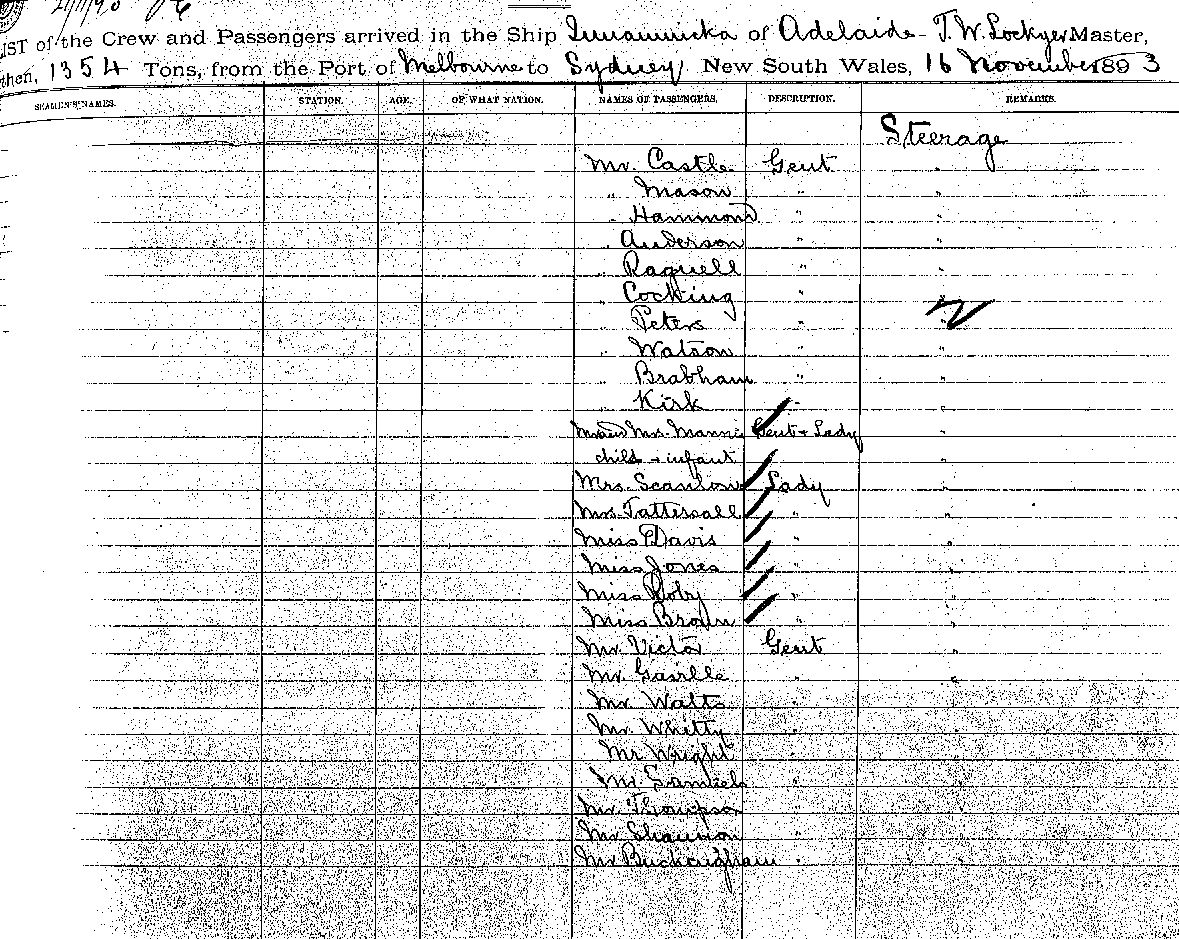 LIST of the Crew and Passengers arrived in the Ship Innamincka of Adelaide - T.W. Lockyer Master,
then, 1354 Tons, from the Port of Melbourne to Sydney New South Wales, 16 November 1893
SEAMEN'S NAMES. STATION. AGE. OF WHAT NATION. NAMES OF PASSENGERS. DESCRIPTION. REMARKS.
Steerage
Mr. Castle Gent
" Mason " "
" Hammond " "
" Anderson " "
" Raquell " "
" Cocking " "
" Peters " "
" Watson " "
" Brabham " "
Kirk " "
Mr and Mrs. Gent + Lady "
child + infant "
Mrs. Scanlon Lady "
Mrs. Tattersall " "
Miss Davis " "
Miss Jones " "
Miss Roby " "
Miss Brown " "
Mr. Victor Gent "
Mr. " "
Mr. Watts "
Mr. Whitty "
Mr. Wright "
Mr. Samuels "
Mr. Thompson "
Mr. Shannon "
Mr Buckingham "